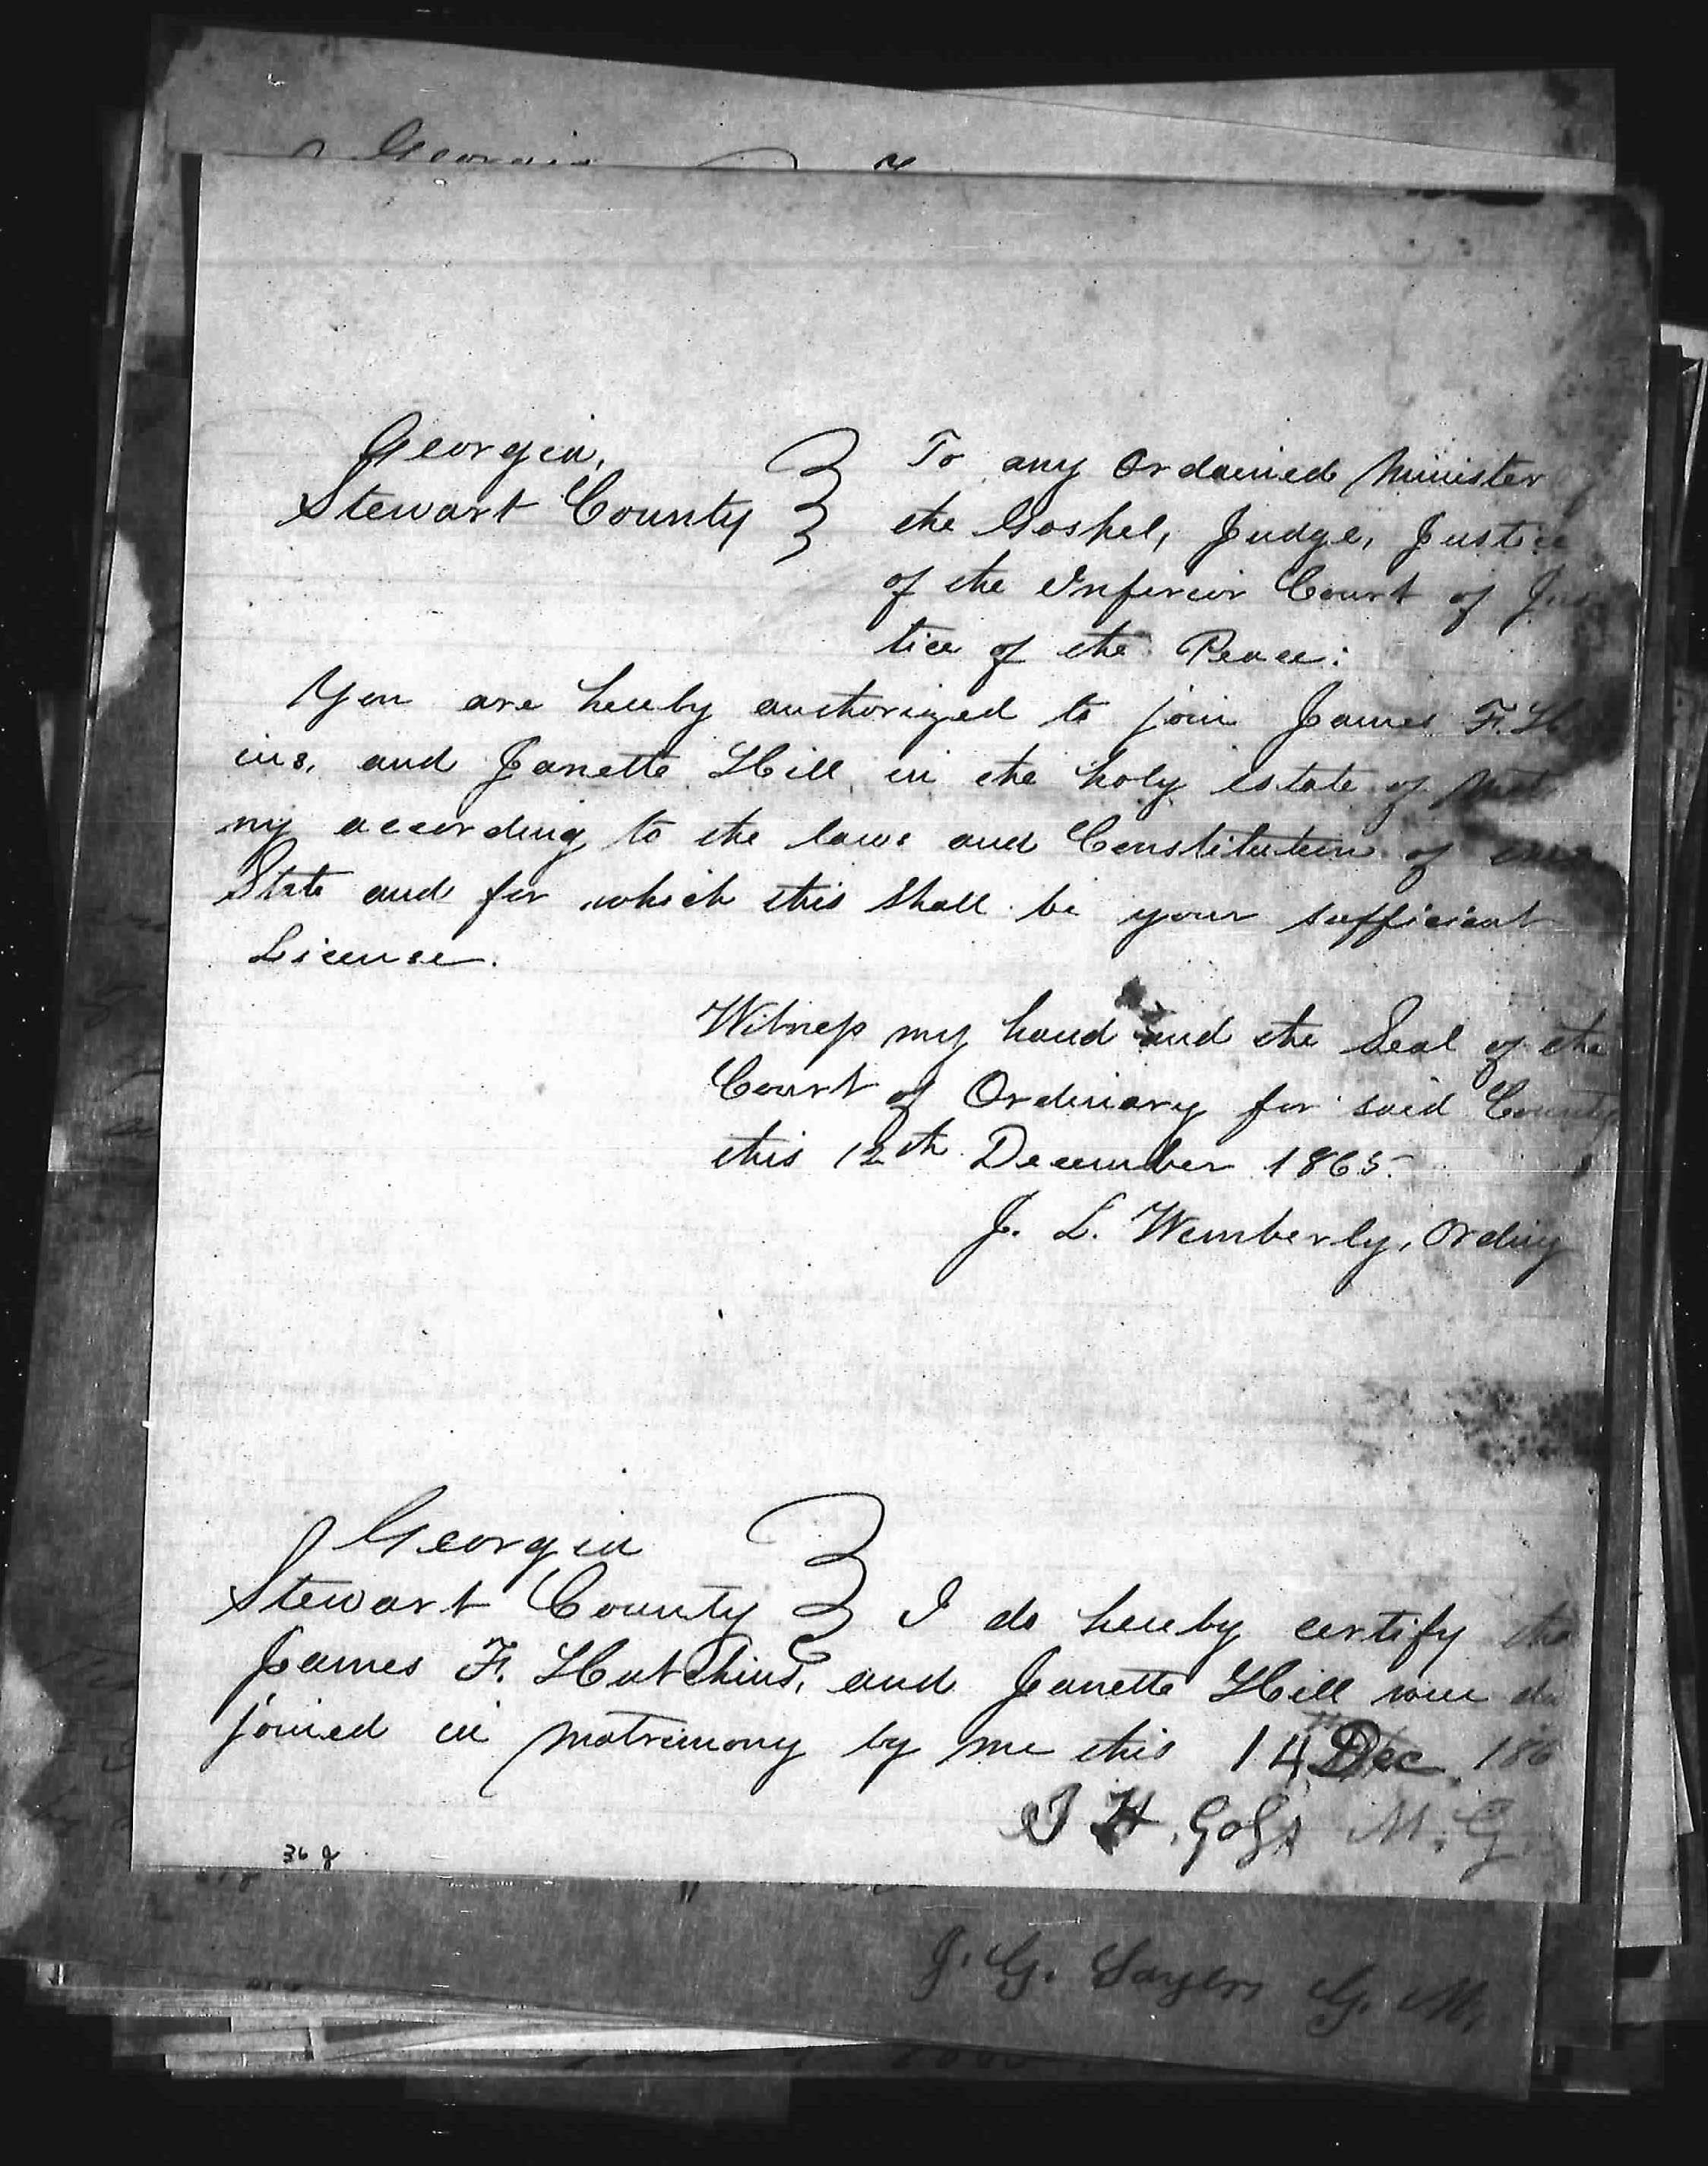 Georgia
Georgia,
Stewart County
To any Ordained Minister
the Gospel, Judge, Justice
of the Inferior Court of Jus
tice of the Peace:
You are hereby authorized to join James F. H
ins, and Janette Hill in the holy estate of Mat
ny according to the laws and Constitution of
State and for which this Shall be your sufficient
License.
Witness my hand and the Seal of the
Court of Ordinary for said County
this 12th December 1865.
J. L. Wimberly, Ordiny
Georgia
Stewart County I do hereby certify tha
James F. Hutchins, and Janette Hill were du
joined in Matrimony by me this 14th Dec, 186
M. G.
36 J
J. G. Sayers G. M.